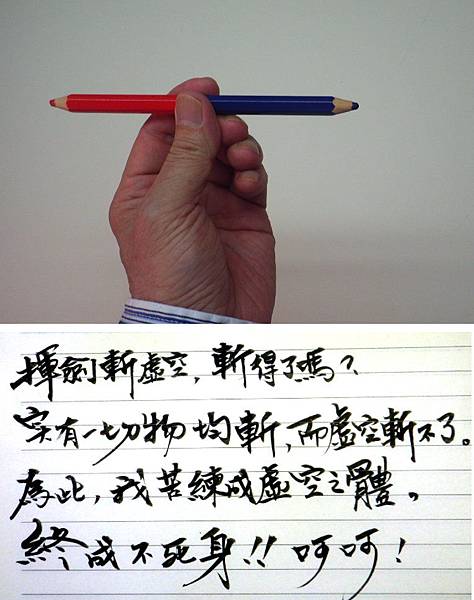 揮劍斬虛空，斬得了嗎？
实有一切物均斬，而虛空斬不了。
為此，我苦練成虛空之體。
終成不死身!! 呵呵！